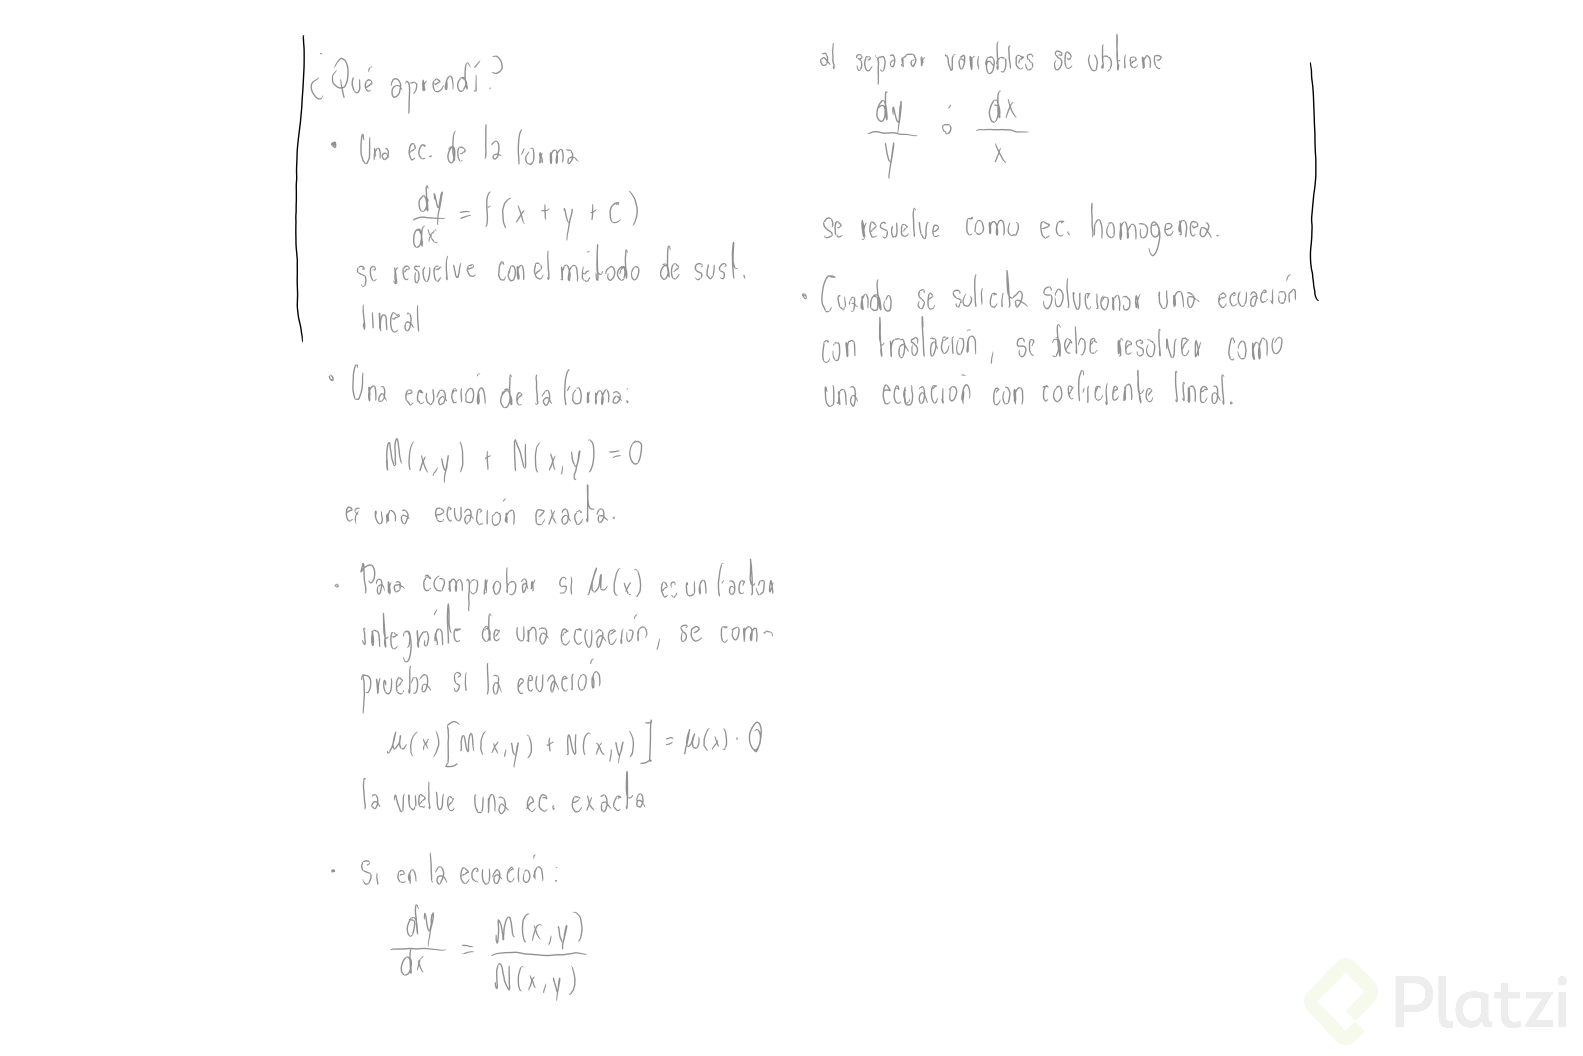 ¿Qué aprendí?
• Una ec. de la forma
dy/dx = f(x + y + c)
se resuelve con el método de sust.
lineal
• Una ecuación de la forma:
M(x,y) + N(x,y) = 0
es una ecuación exacta.
• Para comprobar si μ(x) es un factor
integránte de una ecuación, se com-
prueba si la ecuación
μ(x)[M(x,y) + N(x,y)] = μ(x) · 0
la vuelve una ec. exacta
• Si en la ecuación:
dy/dx = M(x,y)/N(x,y)
al separar variables se obtiene
dy/y ó dx/x
se resuelve como ec. homogenea.
• Cuando se solicita solucionar una ecuación
con traslación, se debe resolver como
una ecuación con coeficiente lineal.
Platzi